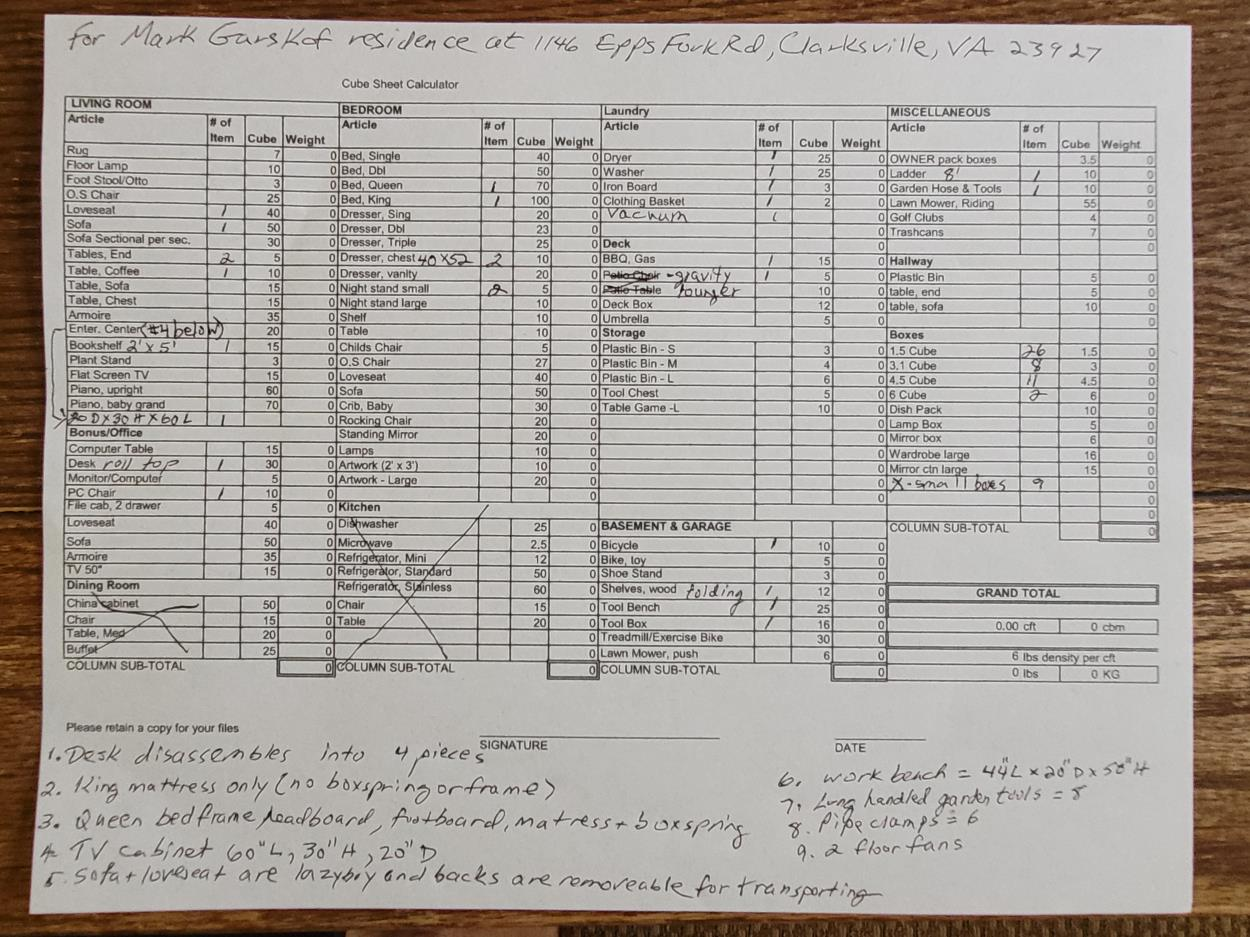 For Mark Garskof residence at 1146 Epps Fork Rd, Clarksville, VA 23927
Cube Sheet Calculator
LIVING ROOM
Article # of Item Cube Weight
Rug 7 0
Floor Lamp 10 0
Foot Stool/Otto 3 0
O.S Chair 25 0
Loveseat 1 40 0
Sofa 1 50 0
Sofa Sectional per sec. 30 0
Tables, End 2 5 0
Table, Coffee 1 10 0
Table, Sofa 15 0
Table, Chest 15 0
Armoire 35 0
Enter. Center (#4 below) 20 0
Bookshelf 2' x 5' 1 15 0
Plant Stand 3 0
Flat Screen TV 15 0
Piano, upright 60 0
Piano, baby grand 70 0
20 D x 30 H x 60 L 1 0
Bonus/Office
Computer Table 15 0
Desk roll top 1 30 0
Monitor/Computer 5 0
PC Chair 1 10 0
File cab, 2 drawer 5 0
Loveseat 40 0
Sofa 50 0
Armoire 35 0
TV 50" 15 0
Dining Room
China cabinet 50 0
Chair 15 0
Table, Med 20 0
Buffet 25 0
COLUMN SUB-TOTAL 0
BEDROOM
Article # of Item Cube Weight
Bed, Single 40 0
Bed, Dbl 50 0
Bed, Queen 1 70 0
Bed, King 1 100 0
Dresser, Sing 20 0
Dresser, Dbl 23 0
Dresser, Triple 25 0
Dresser, chest 40 x 52 2 10 0
Dresser, vanity 20 0
Night stand small 2 5 0
Night stand large 10 0
Shelf 10 0
Table 10 0
Childs Chair 5 0
O.S Chair 27 0
Loveseat 40 0
Sofa 50 0
Crib, Baby 30 0
Rocking Chair 20 0
Standing Mirror 20 0
Lamps 10 0
Artwork (2' x 3') 10 0
Artwork - Large 20 0
0
Kitchen
Dishwasher 25 0
Microwave 2.5 0
Refrigerator, Mini 12 0
Refrigerator, Standard 50 0
Refrigerator, Stainless 60 0
Chair 15 0
Table 20 0
0
0
COLUMN SUB-TOTAL 0
Laundry
Article # of Item Cube Weight
Dryer 1 25 0
Washer 1 25 0
Iron Board 1 3 0
Clothing Basket 1 2 0
Vacnum 1 0
0
Deck
BBQ, Gas 1 15 0
Patio Chair - gravity 1 5 0
Patio Table lounger 10 0
Deck Box 12 0
Umbrella 5 0
Storage
Plastic Bin - S 3 0
Plastic Bin - M 4 0
Plastic Bin - L 6 0
Tool Chest 5 0
Table Game -L 10 0
0
0
0
0
0
0
BASEMENT & GARAGE
Bicycle 1 10 0
Bike, toy 5 0
Shoe Stand 3 0
Shelves, wood folding 1 12 0
Tool Bench 1 25 0
Tool Box 1 16 0
Treadmill/Exercise Bike 30 0
Lawn Mower, push 6 0
COLUMN SUB-TOTAL 0
MISCELLANEOUS
Article # of Item Cube Weight
OWNER pack boxes 3.5 0
Ladder 8' 1 10 0
Garden Hose & Tools 1 10 0
Lawn Mower, Riding 55 0
Golf Clubs 4 0
Trashcans 7 0
0
Hallway
Plastic Bin 5 0
table, end 5 0
table, sofa 10 0
0
Boxes
1.5 Cube 26 1.5 0
3.1 Cube 8 3 0
4.5 Cube 11 4.5 0
6 Cube 2 6 0
Dish Pack 10 0
Lamp Box 5 0
Mirror box 6 0
Wardrobe large 16 0
Mirror ctn large 15 0
X-small boxes 9 0
0
0
COLUMN SUB-TOTAL 0
GRAND TOTAL
0.00 cft 0 cbm
6 lbs density per cft
0 lbs 0 KG
Please retain a copy for your files
SIGNATURE
DATE
1. Desk disassembles into 4 pieces
2. King mattress only (no boxspring or frame)
3. Queen bedframe, headboard, footboard, matress + boxspring
4. TV cabinet 60"L, 30"H, 20"D
5. Sofa + loveseat are lazyboy and backs are removeable for transporting
6. work bench = 44"L x 20"D x 50"H
7. Long handled garden tools = 8
8. Pipe clamps = 6
9. 2 floor fans